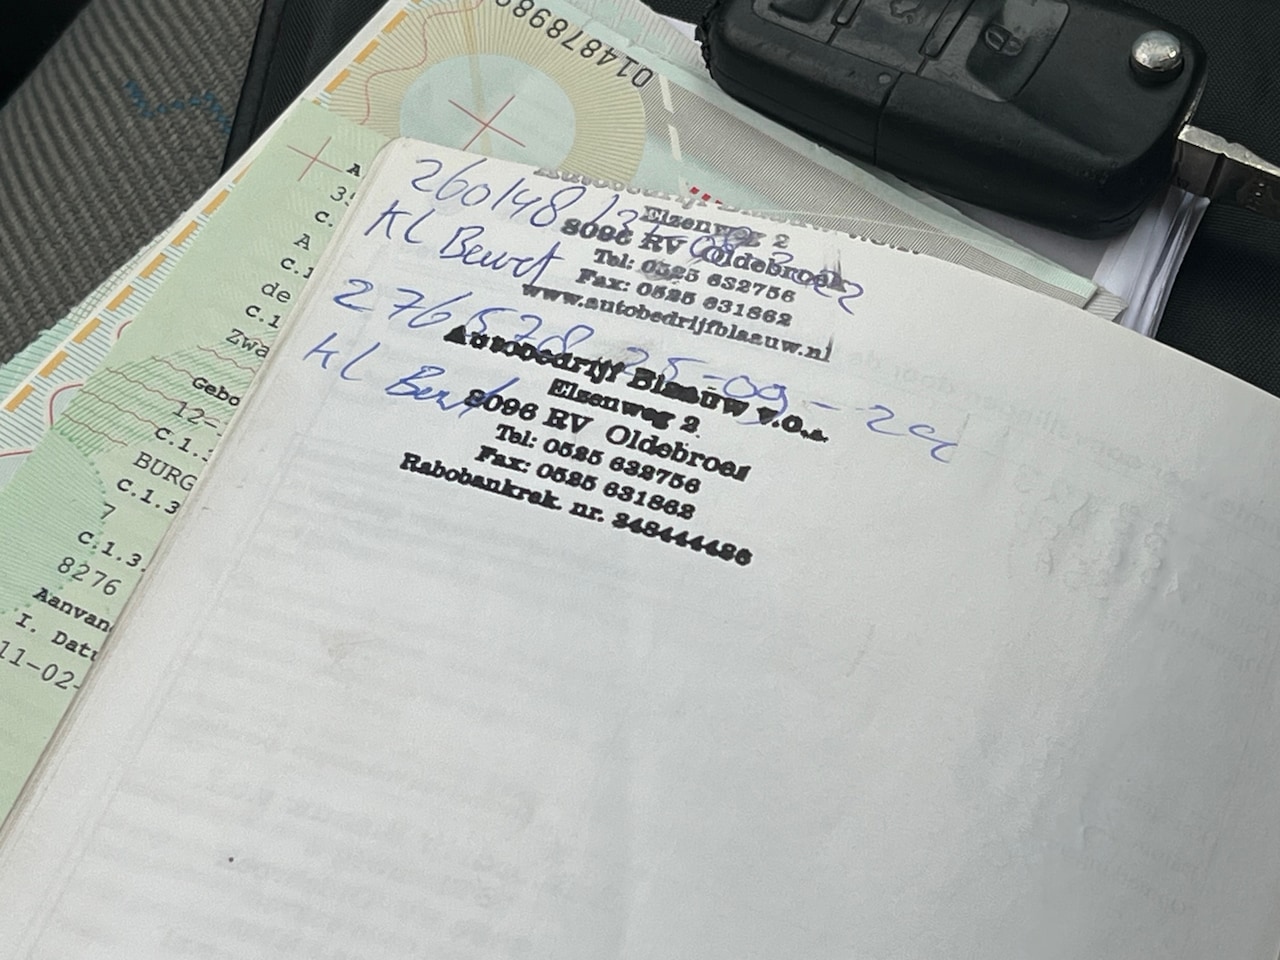 014878986
260148
Kl Beurt
Autobedrijf Blaauw v.o.f.
Elzenweg 2
8096 RV Oldebroek
Tel: 0525 632756
Fax: 0525 631862
www.autobedrijfblaauw.nl
276578 25-09-24
Kl Beurt
Autobedrijf Blaauw v.o.f.
Elzenweg 2
8096 RV Oldebroek
Tel: 0525 632756
Fax: 0525 631862
Rabobankrek. nr. 348444486
A
C.
A
C.1
de
C.1
Zwa
Gebo
12-
C.1.
BURG
C.1.3
7
C.1.3.
8276
Aanvan
I. Datu
11-02-